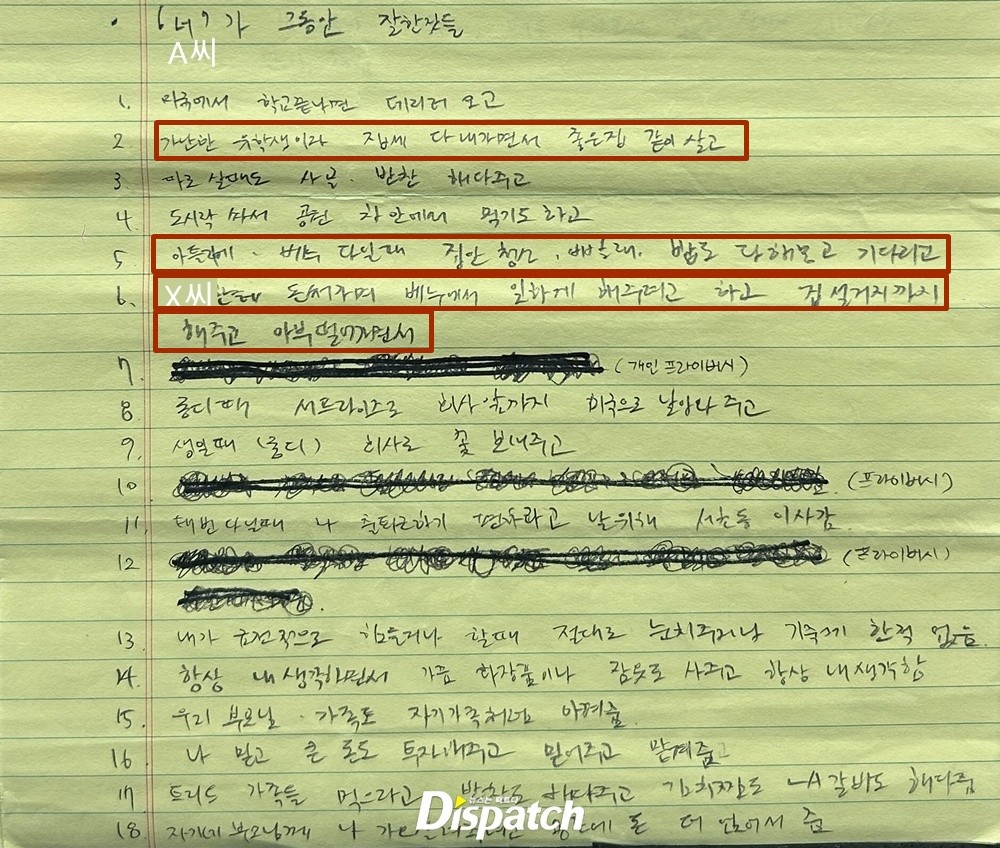 • '너'가 그동안 잘한것들
A씨
1. 미국에서 학교끝나면 데리러 오고
2 가난한 유학생이라 집세 다 내가면서 좋은집 같이 살고
3. 따로 살때도 사골. 반찬 해다주고
4 도시락 싸서 공원 차 안에서 먹기도 하고
5 다닐때 집안 청소, 빨래. 밥도 다해놓고 기다리고
6. X씨한테 돈써가며 에서 일하게 해주려고 하고 집 설거지까지
해주고 아부떨어가면서
7. (개인 프라이버시)
8 롱디때 서프라이즈로 회사 앞까지 미국으로 날아와 주고
9. 생일때 (롱디) 회사로 꽃 보내주고
10 (프라이버시)
11. 다닐때 나 출퇴근하기 편하라고 날위해 서초동 이사감.
12 (프라이버시)
13. 내가 금전적으로 힘들거나 할때 절대로 눈치주거나 기죽게 한적 없음.
14. 항상 내 생각하면서 가끔 화장품이나 잠옷도 사주고 항상 내 생각함
15. 우리 부모님. 가족도 자기가족처럼 아껴줌.
16 나 믿고 큰 돈도 투자해주고 믿어주고 맡겨줌
17 가족들 먹으라고 반찬도 해다주고 김치찌도 LA갈비도 해다줌
18. 자기네 부모님께 나 돈 더 얹어서 줌
뉴스는 팩트다
Dispatch